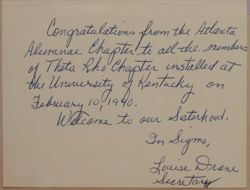 Congratulations from the Atlanta
Alumnae Chapter to all the members
of Theta Rho Chapter installed at
the University of Kentucky on
February 10, 1990.
Welcome to our Sisterhood.
In Sigma,
Louise Drane
Secretary